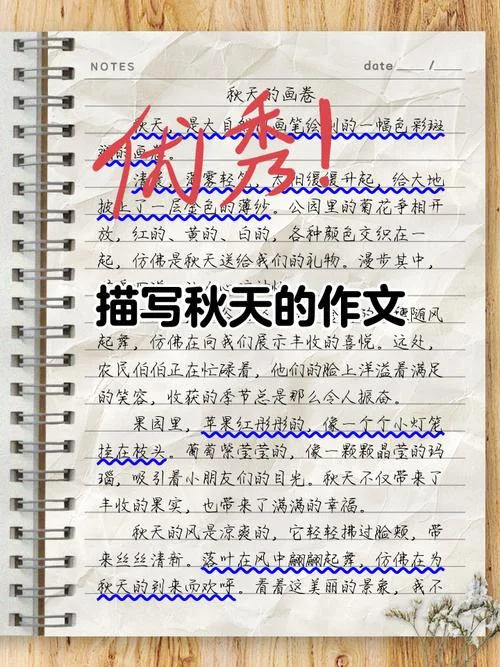 NOTES
date ____ / ____
秋天的画卷
秋天，是大自然画笔绘制的一幅色彩斑
的画卷。
优秀！
清晨，薄雾轻笼，太阳缓缓升起，给大地
披上了一层金色的薄纱。公园里的菊花争相开
放，红的、黄的、白的，各种颜色交织在一
起，仿佛是秋天送给我们的礼物。漫步其中，
描写秋天的作文
随风
起舞，仿佛在向我们展示丰收的喜悦。远处，
农民伯伯正在忙碌着，他们的脸上洋溢着满足
的笑容，收获的季节总是那么令人振奋。
果园里，苹果红彤彤的，像一个个小灯笼
挂在枝头。葡萄紫莹莹的，像一颗颗晶莹的玛
瑙，吸引着小朋友们的目光。秋天不仅带来了
丰收的果实，也带来了满满的幸福。
秋天的风是凉爽的，它轻轻拂过脸颊，带
来丝丝清新。落叶在风中翩翩起舞，仿佛在为
秋天的到来而欢呼。看着这美丽的景象，我不